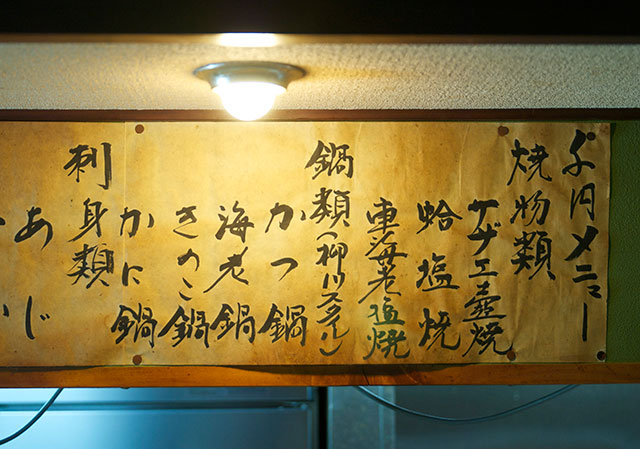 メニュー
焼物類
サザエ壺焼
蛤塩焼
車海老塩焼
鍋類(柳川スタイル)
かつ鍋
海老鍋
きのこ鍋
かに鍋
刺身類
あじ